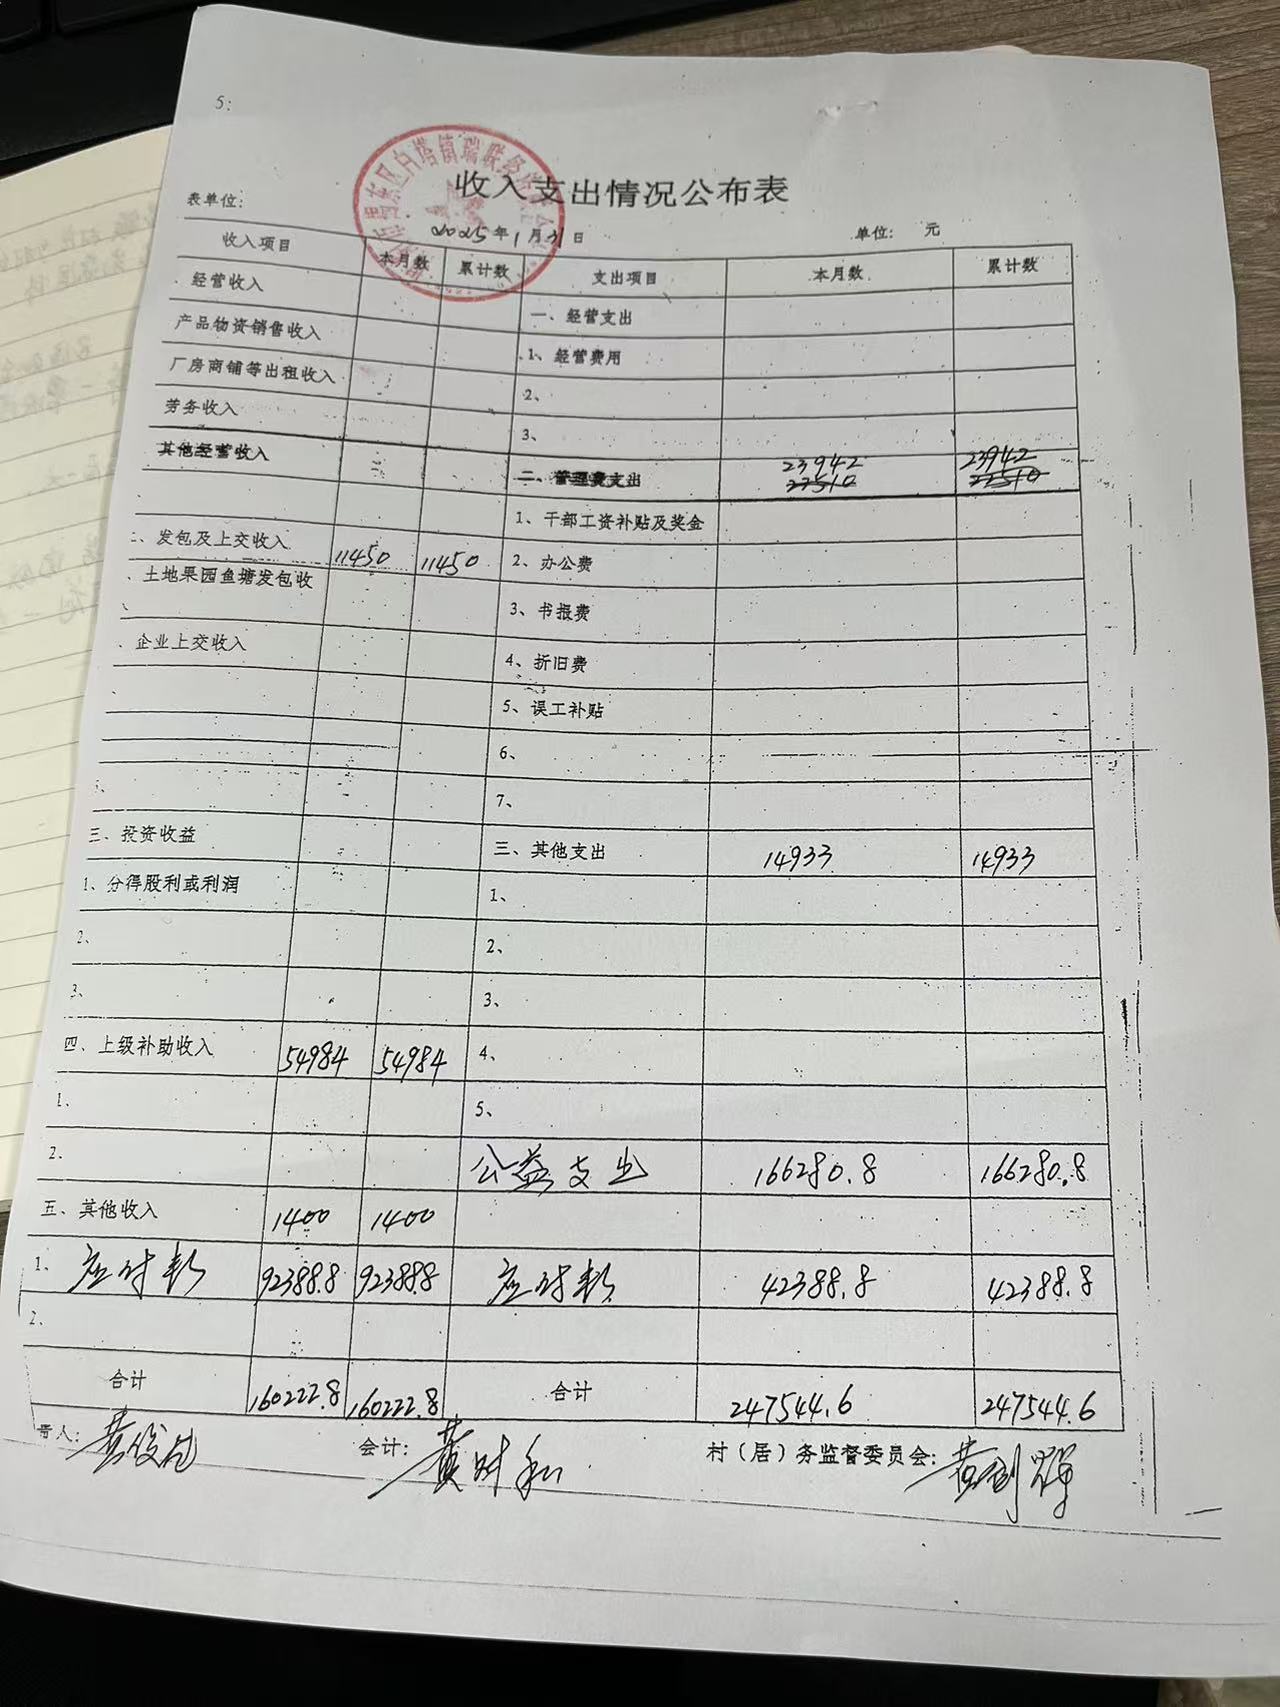 5:
收入支出情况公布表
表单位:
2025年1月31日
单位: 元
收入项目 本月数 累计数 支出项目 本月数 累计数
经营收入 一、经营支出
产品物资销售收入 1、经营费用
厂房商铺等出租收入 2、
劳务收入 3、
其他经营收入 二、管理费支出 23942 23942
22510 22510
1、干部工资补贴及奖金
、发包及上交收入 11450 11450 2、办公费
、土地果园鱼塘发包收 3、书报费
、企业上交收入 4、折旧费
5、误工补贴
6、
7、
三、投资收益 三、其他支出 14933 14933
1、分得股利或利润 1、
2、 2、
3、 3、
四、上级补助收入 54984 54984 4、
1、 5、
2、 公益支出 166280.8 166280.8
五、其他收入 1400 1400
1、应付款 92388.8 92388.8 应付款 42388.8 42388.8
2、
合计 160222.8 160222.8 合计 247544.6 247544.6
责人: 会计: 村（居）务监督委员会: